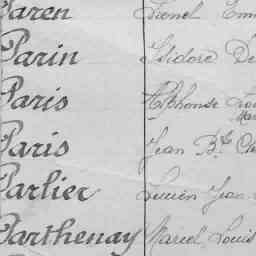 Paren Lionel Em
Parin Isidore De
Paris Alphonse
Paris Jean B.te Ch
Parlier Lucien Jean
Parthenay Marcel Louis